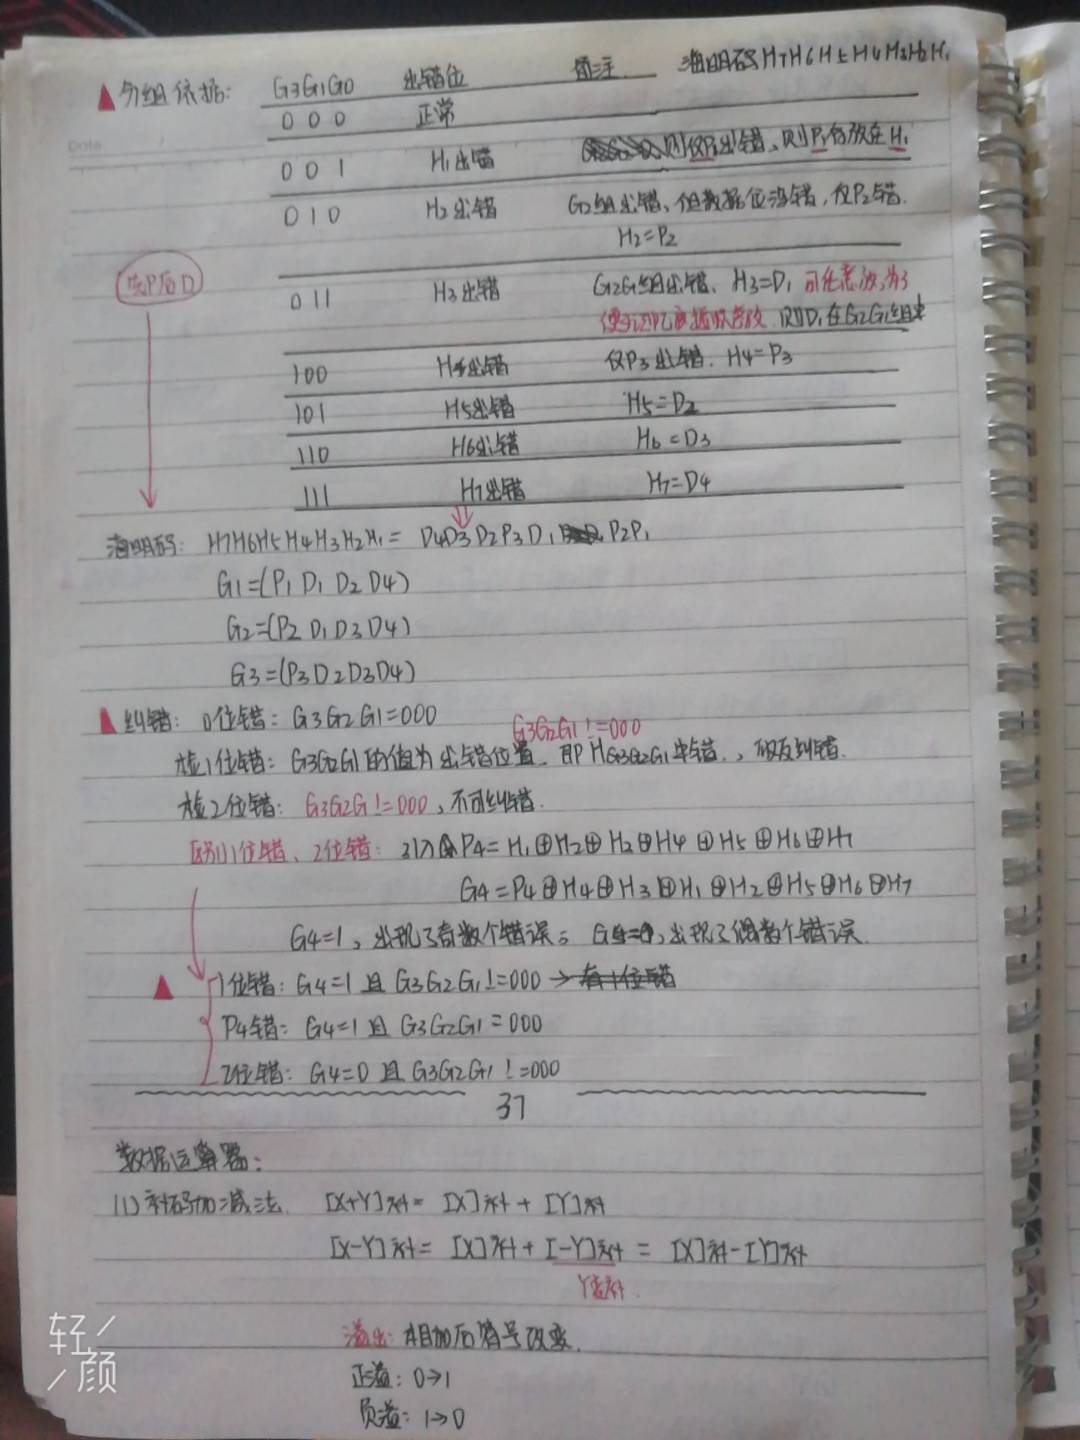 ▲分组依据: G3G1G0 出错位 备注 海明码H7H6H5H4H3H2H1
Date
000 正常
001 H1出错 则仅P1出错、则P1存放在H1
010 H2出错 G2组出错、但数据位没错,仅P2错.
H2=P2
先P后D
011 H3出错 G2G1组出错、H3=D1 可任意放,为了
便于记忆直接顺序放. 则D1在G2G1组中
100 H4出错 仅P3出错. H4=P3
101 H5出错 H5=D2
110 H6出错 H6=D3
111 H7出错 H7=D4
海明码: H7H6H5H4H3H2H1= D4D3D2P3D1 P2P1
G1=(P1 D1 D2 D4)
G2=(P2 D1 D3 D4)
G3=(P3 D2 D3 D4)
▲纠错: 0位错: G3G2G1=000
G3G2G1!=000
检1位错: G3G2G1的值为出错位置. 即HG3G2G1出错., 取反纠错.
检2位错: G3G2G!=000, 不可纠错.
区别1位错、2位错: 引入P4= H1⊕H2⊕H2⊕H4⊕H5⊕H6⊕H7
G4=P4⊕H4⊕H3⊕H1⊕H2⊕H5⊕H6⊕H7
G4=1, 出现了奇数个错误; G4=0, 出现了偶数个错误.
▲ 1位错: G4=1 且 G3G2G1!=000 → 有1位错
P4错: G4=1 且 G3G2G1=000
2位错: G4=0 且 G3G2G1!=000
37
数据运算器:
(1)补码加减法. [X+Y]补= [X]补+[Y]补
[X-Y]补= [X]补+[-Y]补 = [X]补-[Y]补
Y变补.
溢出: 相加后符号改变.
正溢: 0→1
负溢: 1→0
轻
颜